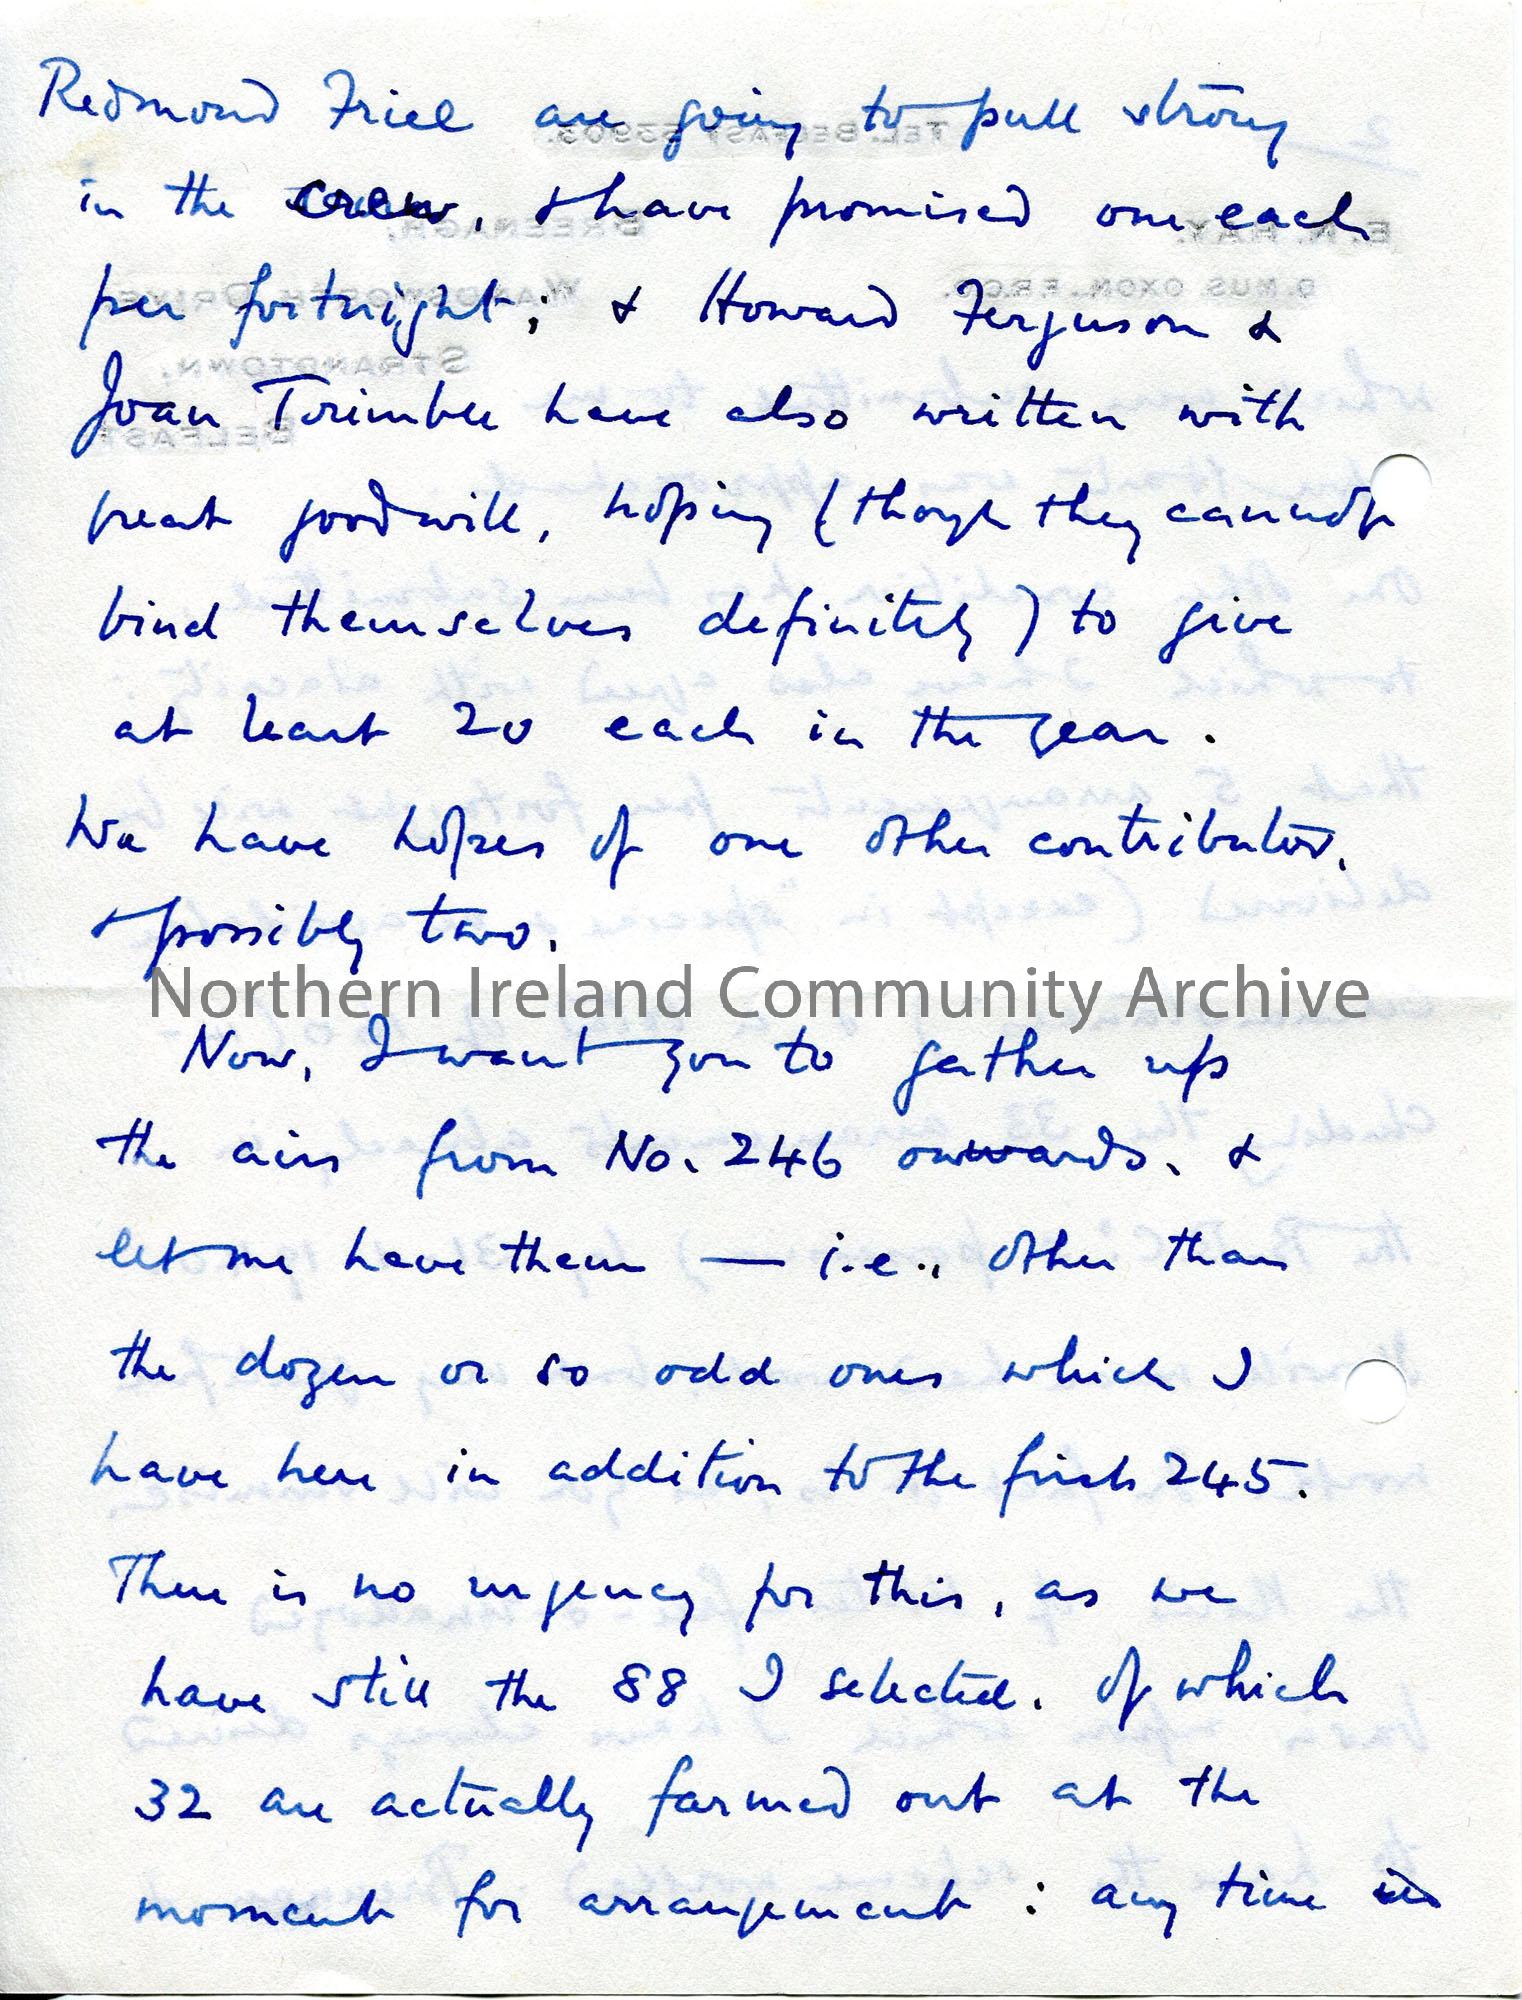 Redmond Friel are going to pull strong
in the crew, & have promised one each
per fortnight; & Howard Ferguson &
Joan Trimble have also written with
great goodwill, hoping (though they cannot
bind themselves definitely) to give
at least 20 each in the year.
We have hopes of one other contributor,
& possibly two.
Northern Ireland Community Archive
Now, I want you to gather up
the airs from No. 246 onwards, &
let me have them — i.e., other than
the dozen or so odd ones which I
have here in addition to the first 245.
There is no urgency for this, as we
have still the 88 I selected, of which
32 are actually farmed out at the
moment for arrangement: any time in